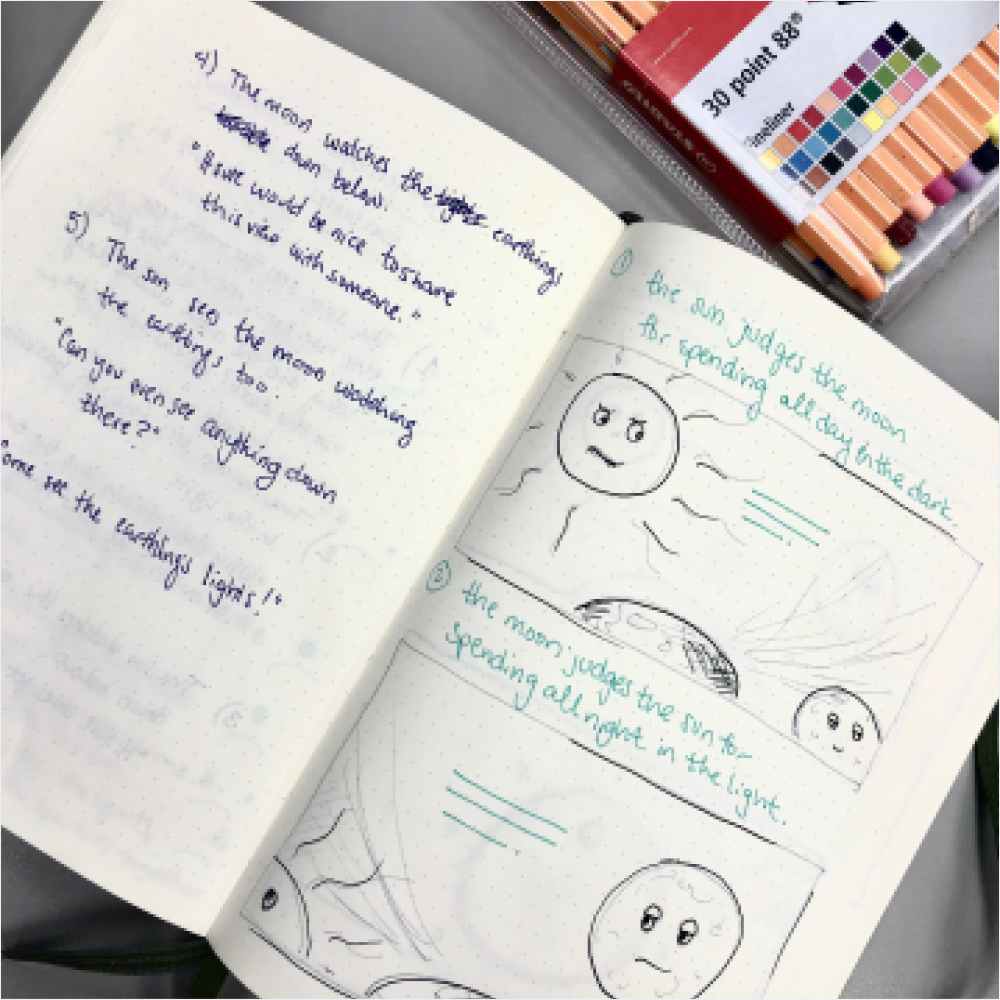 4) The moon watches the earthlings
down below.
"It sure would be nice to share
this view with someone."
5) The sun sees the moon watching
the earthlings too.
"Can you even see anything down
there?"
Come see the earthlings lights!"
① the sun judges the moon
for spending all day in the dark.
② the moon judges the sun for
spending all night in the light.
30 point 88®
fineliner
STABILO